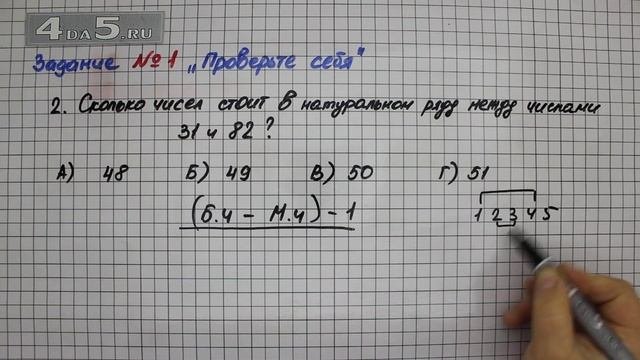 4DA5.RU
Задание №1 „Проверьте себя"
2. Сколько чисел стоит в натуральном ряду между числами
31 и 82?
А) 48 Б) 49 В) 50 Г) 51
(Б.ч - М.ч) - 1
1 2 3 4 5